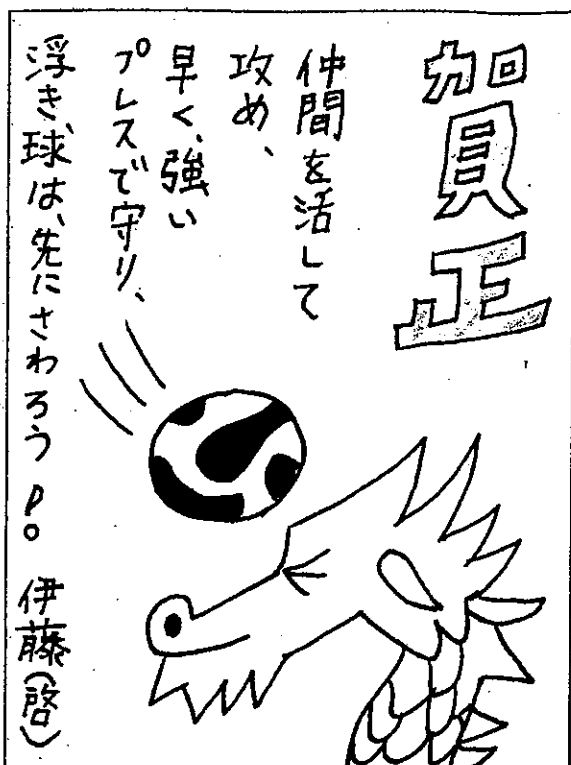 賀正
仲間を活して
攻め、
早く、強い
プレスで守り、
浮き球は、先にさわろうp。 伊藤(啓)